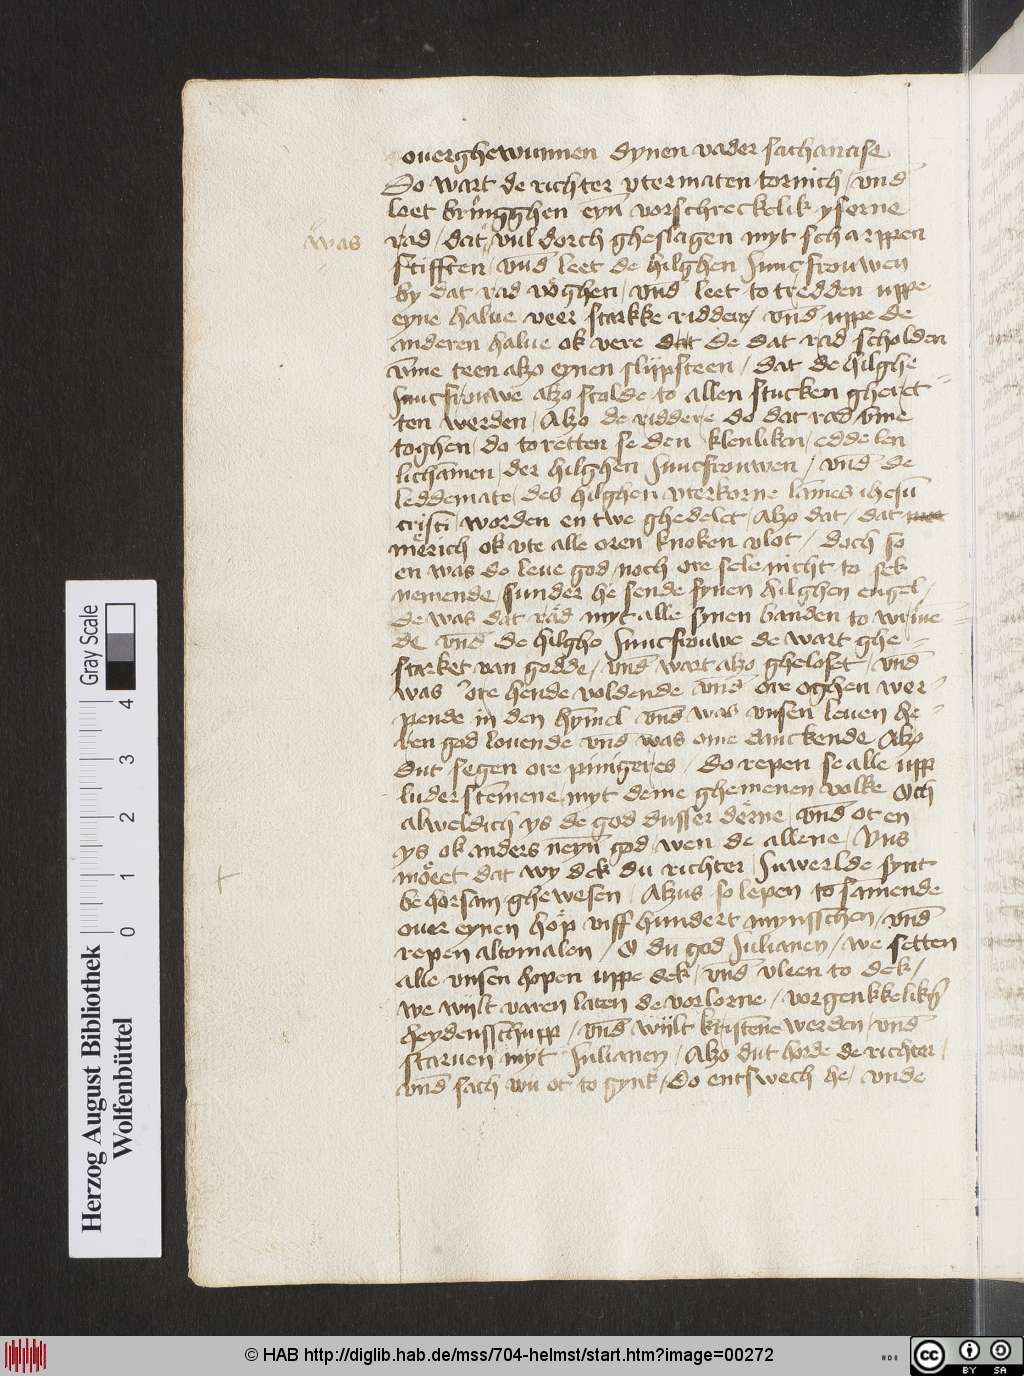 ouerghewunnen dynen vader sathanase
Do wart de richter vtermaten tornich / vnd̄
leet bringghen eyn̄ vorschreckelik yserne
was
rad / dat vul dorch gheslagen myt scharppen
stifften / vnd̄ leet de hilghen Juncfrouwen
by dat rad vöghen / vnd̄ leet to tredden uppe
eyne halue veer starkke riddere / vnd̄ uppe de
anderen halue ok vere dat de dat rad scholden
vm̄e teen alzo eynen slijpsteen / dat de hilghe
Juncfrouwe alzo scolde to allen stucken gheret
ten werden / Alzo de riddere do dat rad vm̄e
toghen / do to retten se den klenliken / eddelen
lichāmen / der hilghen Juncfrouwen / vnd̄ de
leddemate / des hilghen vterkorne lāmes ihesū
cristi / worden en twe ghedelet / Alzo dat / dat
merich ok vte alle oren knoken vlot / doch so
en was do leue god noch ore sele nicht to sek
nemende / sunder he sende synen hilghen engel /
de was dat rad myt alle synen banden to wriuē
de vnd̄ de hilghe Juncfrouwe de wart ghe-
starket van godde / vnd̄ wart alzo gheloset / vnd̄
was ore hende voldende vnd̄ ore oghen wer-
pende in den hȳmel vnd̄ was vnsen leuen he-
ren god louende vnd̄ was ome danckende Alzo
dut segen ore pinigeres / Do repen se alle upp
luder stēmene myt deme ghemenen volke Och
alweldich ys de god dusser derne / vnd̄ ot en
ys ok anders neyn̄ god / wen de allene / Vns
möet dat wy dek du richter / Juwerlde synt
behorsam ghewesen / Alzus so lepen to sāmende
ouer eynen höp viff hundert mynsschen / vnd̄
repen altomalen / O du god Julianen / we setten
alle vnsen hopen uppe dek / vnd̄ vleen to dek /
we wijlt varen laten de vorlorne / vorgenkkelikē
heydensschupp / vnd̄ wijlt kristene werden / vnd̄
staruen myt Julianen / Alzo dut horde de richter /
vnd̄ sach wu ot to gynk / Do entswech he / vnde
Herzog August Bibliothek
Wolfenbüttel
Gray Scale
0 1 2 3 4
© HAB http://diglib.hab.de/mss/704-helmst/start.htm?image=00272
HDB
cc
BY SA